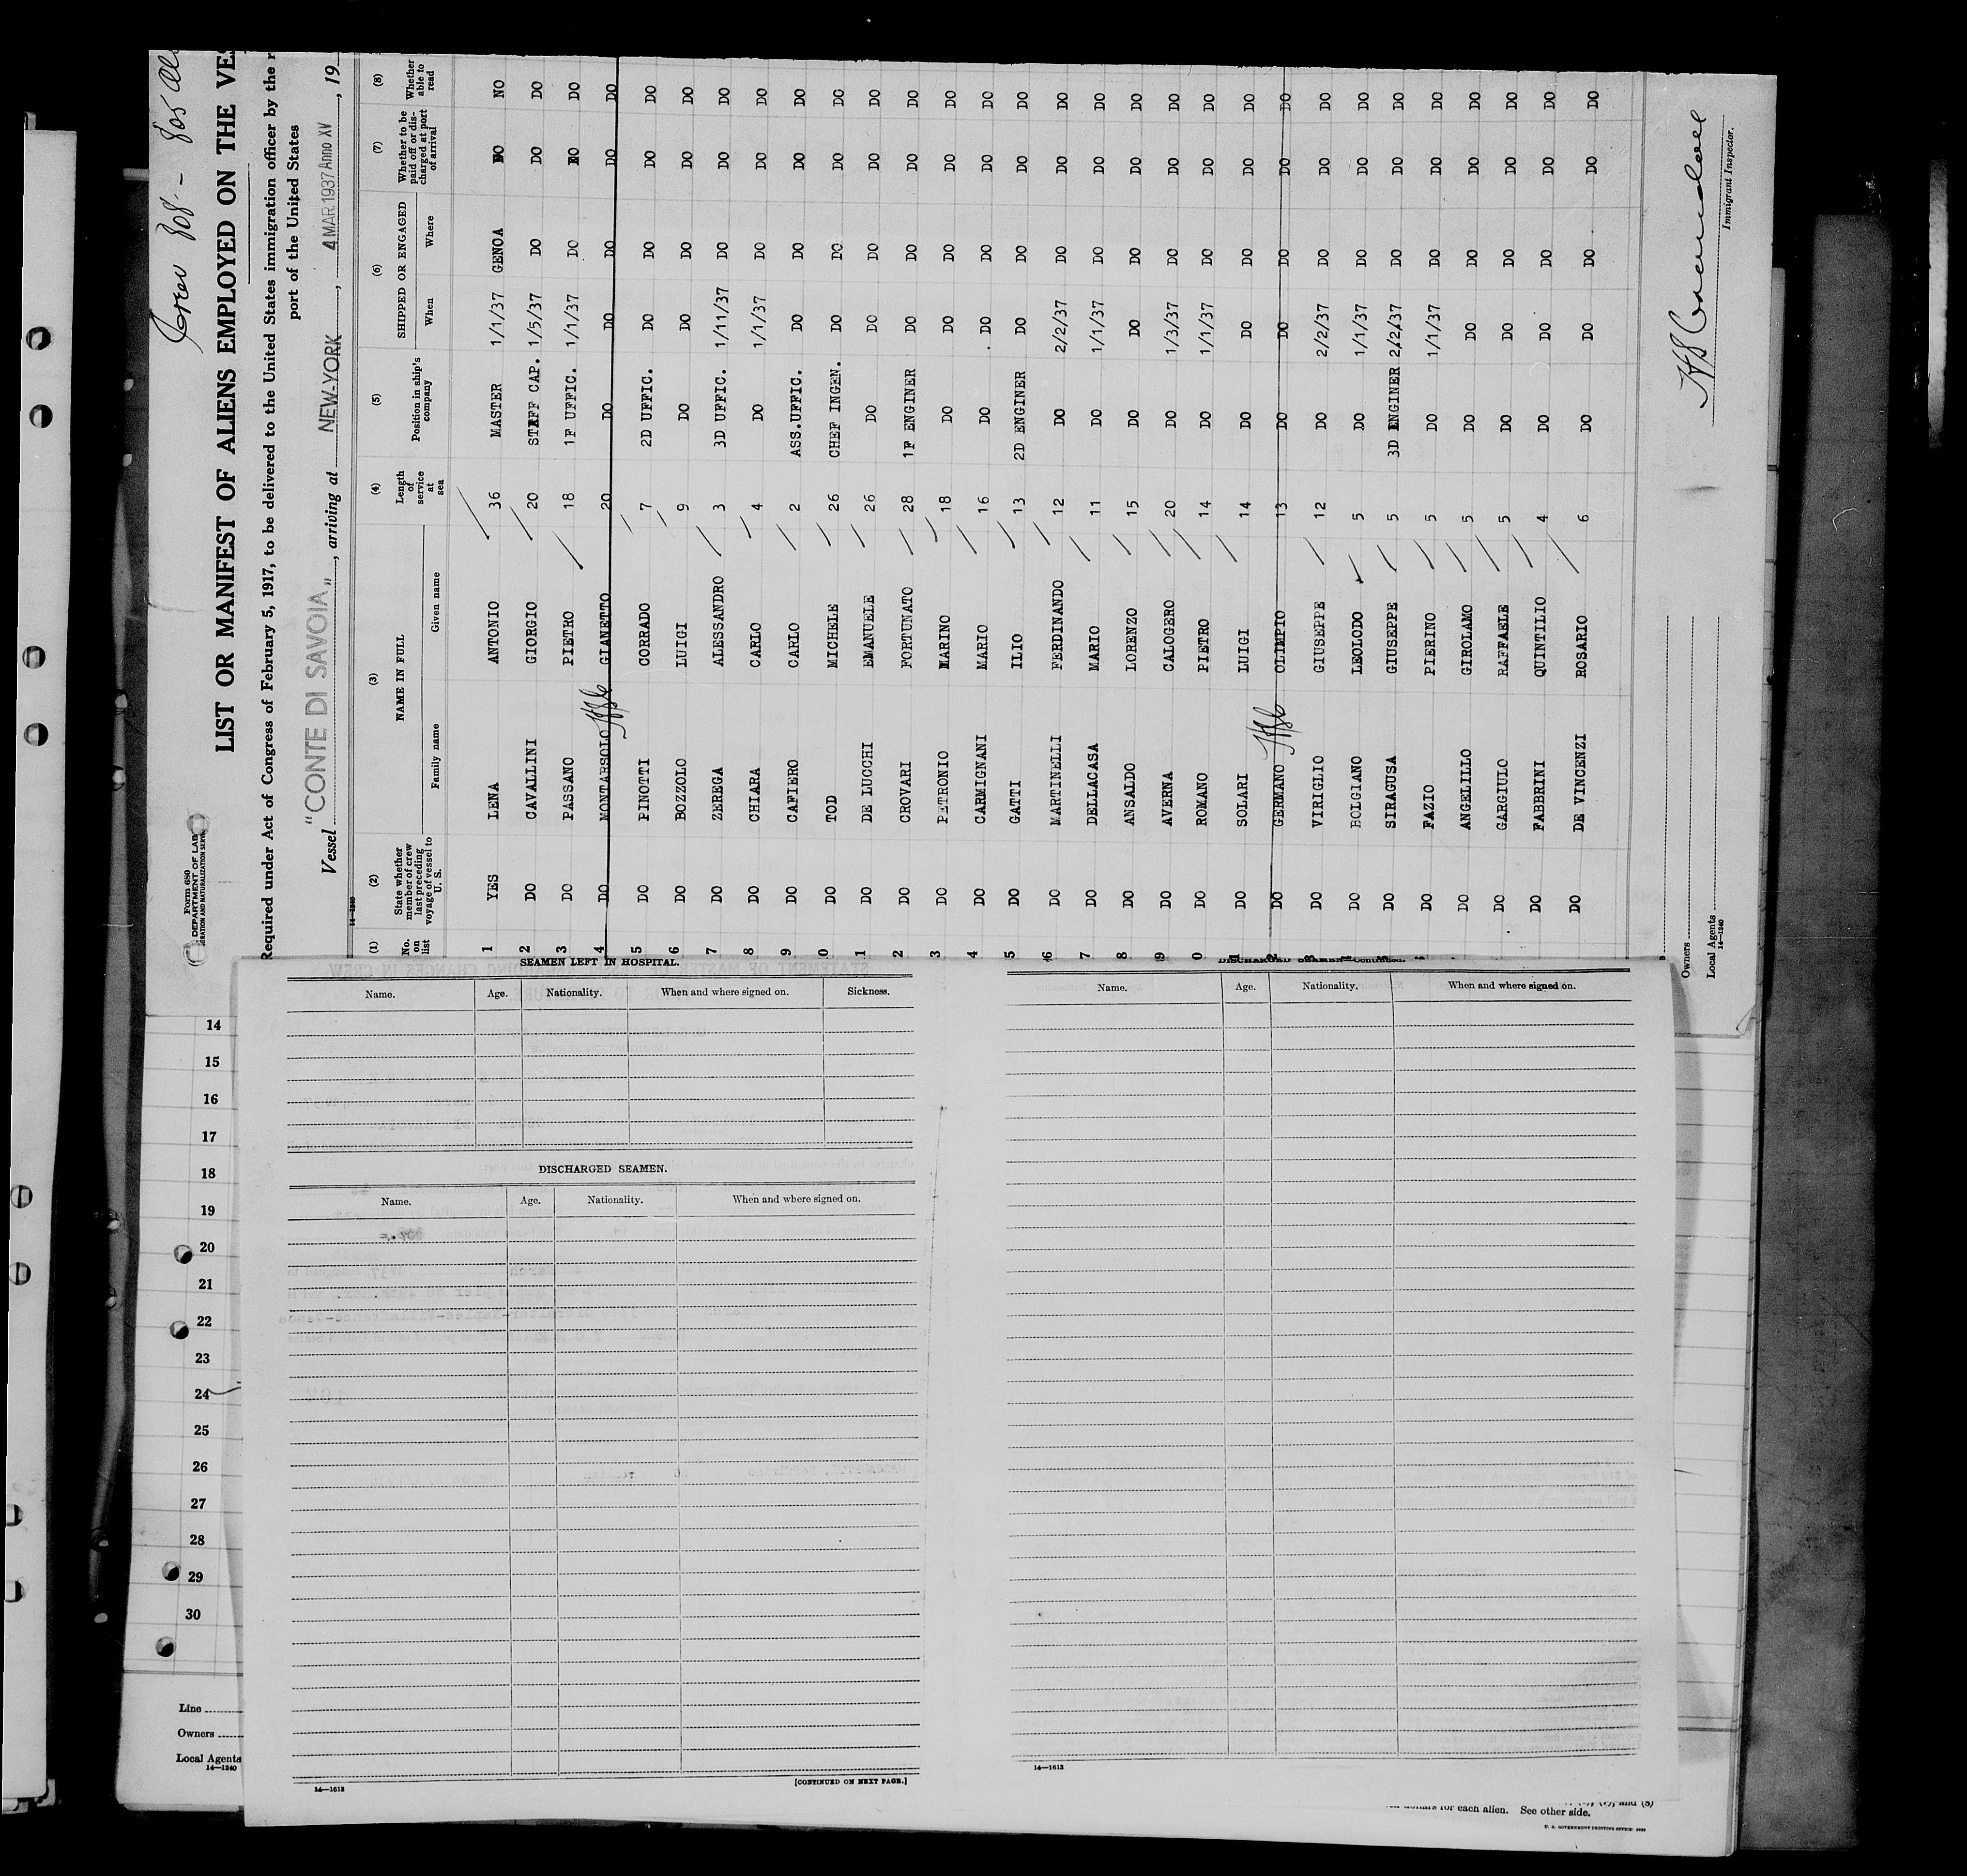 Form 680
DEPARTMENT OF LAB
GRATION AND NATURALIZATION SERV
Crew 808 -
LIST OR MANIFEST OF ALIENS EMPLOYED ON THE VES
Required under Act of Congress of February 5, 1917, to be delivered to the United States immigration officer by the r
port of the United States
Vessel "CONTE DI SAVOIA", arriving at NEW-YORK, 4 MAR.1937 Anno XV, 19
14—1240
(1) (2) (3) (4) (5) (6) (7) (8)
No. on list State whether member of crew last preceding voyage of vessel to U. S. NAME IN FULL Family name Given name Length of service at sea Position in ship's company SHIPPED OR ENGAGED When Where Whether to be paid off or discharged at port of arrival Whether able to read
1 YES LENA ANTONIO 36 MASTER 1/1/37 GENOA DO NO
2 DO CAVALLINI GIORGIO 20 STAFF CAP. 1/5/37 DO DO DO
3 DO PASSANO PIETRO 18 1F UFFIC. 1/1/37 DO DO DO
4 DO MONTARSOLO GIANETTO 20 DO DO DO DO DO
5 DO PINOTTI CORRADO 7 2D UFFIC. DO DO DO DO
6 DO BOZZOLO LUIGI 9 DO DO DO DO DO
7 DO ZEREGA ALESSANDRO 3 3D UFFIC. 1/11/37 DO DO DO
8 DO CHIARA CARLO 4 DO 1/1/37 DO DO DO
9 DO CAFIERO CARLO 2 ASS.UFFIC. DO DO DO DO
0 DO TOD MICHELE 26 CHEF INGEN. DO DO DO DO
1 DO DE LUCCHI EMANUELE 26 DO DO DO DO DO
2 DO CROVARI FORTUNATO 28 1F ENGINER DO DO DO DO
3 DO PETRONIO MARINO 18 DO DO DO DO DO
4 DO CARMIGNANI MARIO 16 DO DO DO DO DO
5 DO GATTI ILIO 13 2D ENGINER DO DO DO DO
6 DO MARTINELLI FERDINANDO 12 DO 2/2/37 DO DO DO
7 DO DELLACASA MARIO 11 DO 1/1/37 DO DO DO
8 DO ANSALDO LORENZO 15 DO DO DO DO DO
9 DO AVERNA CALOGERO 20 DO 1/3/37 DO DO DO
0 DO ROMANO PIETRO 14 DO 1/1/37 DO DO DO
1 DO SOLARI LUIGI 14 DO DO DO DO DO
2 DO GERMANO OLIMPIO 13 DO DO DO DO DO
DO VIRIGLIO GIUSEPPE 12 DO 2/2/37 DO DO DO
DO BOLGIANO LEOLODO 5 DO 1/1/37 DO DO DO
DO SIRAGUSA GIUSEPPE 5 3D ENGINER 2/2/37 DO DO DO
DO FAZIO PIERINO 5 DO 1/1/37 DO DO DO
DO ANGELILLO GIROLAMO 5 DO DO DO DO DO
DO GARGIULO RAFFAELE 5 DO DO DO DO DO
DO FABBRINI QUINTILIO 4 DO DO DO DO DO
DO DE VINCENZI ROSARIO 6 DO DO DO DO DO
Owners
Local Agents
14—1240
Immigrant Inspector.
SEAMEN LEFT IN HOSPITAL.
Name. Age. Nationality. When and where signed on. Sickness.
DISCHARGED SEAMEN.
Name. Age. Nationality. When and where signed on.
14—1613
[CONTINUED ON NEXT PAGE.]
DISCHARGED SEAMEN—Continued.
Name. Age. Nationality. When and where signed on.
14—1613
14
15
16
17
18
19
20
21
22
23
24
25
26
27
28
29
30
Line
Owners
Local Agents
14—1240
and (8)
dollars for each alien. See other side.
U. S. GOVERNMENT PRINTING OFFICE: